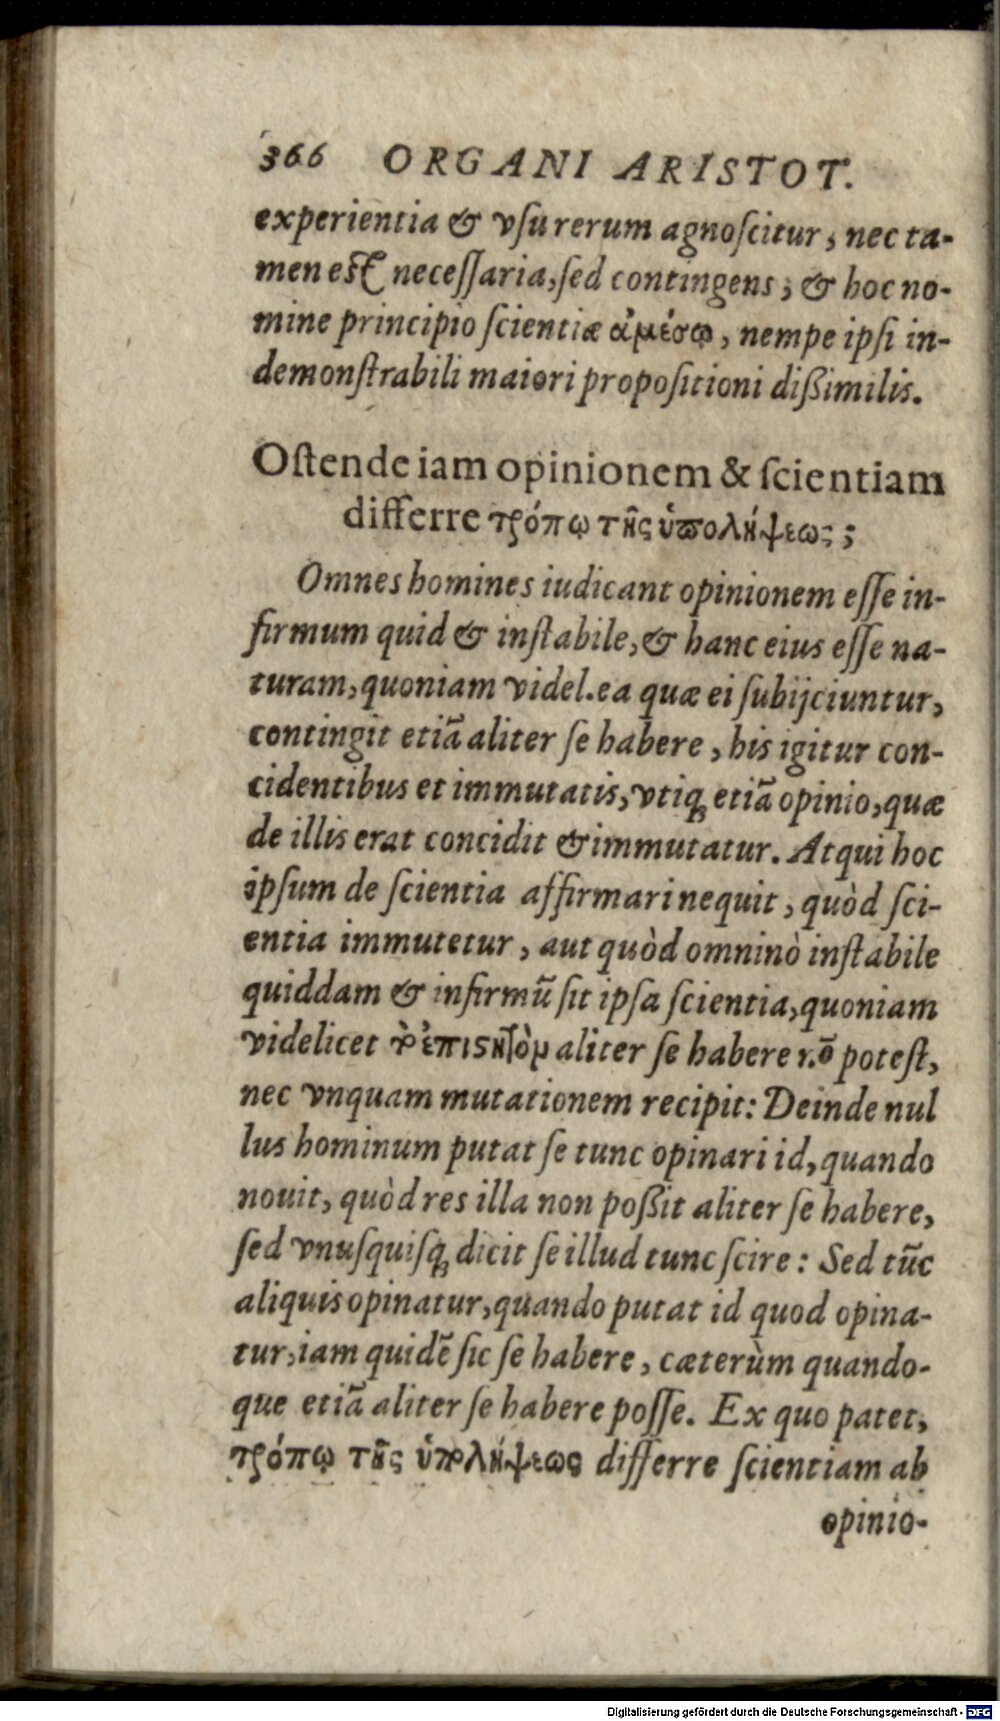 366 ORGANI ARISTOT.
experientia & vſu rerum agnoſcitur, nec ta-
men eſt neceſſaria, ſed contingens; & hoc no-
mine principio ſcientiæ ἀμέσῳ, nempe ipſi in-
demonſtrabili maiori propoſitioni dißimilis.
Oſtende iam opinionem & ſcientiam
differre τρόπῳ τῆς ὑπολήψεως;
Omnes homines iudicant opinionem eſſe in-
firmum quid & inſtabile, & hanc eius eſſe na-
turam, quoniam videl. ea quæ ei ſubijciuntur,
contingit etiā aliter ſe habere, his igitur con-
cidentibus et immutatis, vtiq; etiā opinio, quæ
de illis erat concidit & immutatur. Atqui hoc
ipſum de ſcientia affirmari nequit, quòd ſci-
entia immutetur, aut quòd omninò inſtabile
quiddam & infirmū ſit ipſa ſcientia, quoniam
videlicet τὸ ἐπιϛητὸν aliter ſe habere nō poteſt,
nec vnquam mutationem recipit: Deinde nul
lus hominum putat ſe tunc opinari id, quando
nouit, quòd res illa non poßit aliter ſe habere,
ſed vnuſquiſq; dicit ſe illud tunc ſcire: Sed tūc
aliquis opinatur, quando putat id quod opina-
tur, iam quidē ſic ſe habere, cæterùm quando-
que etiā aliter ſe habere poſſe. Ex quo patet,
τρόπῳ τῆς ὑπολήψεως differre ſcientiam ab
opinio-
Digitalisierung gefördert durch die Deutsche Forschungsgemeinschaft - DFG